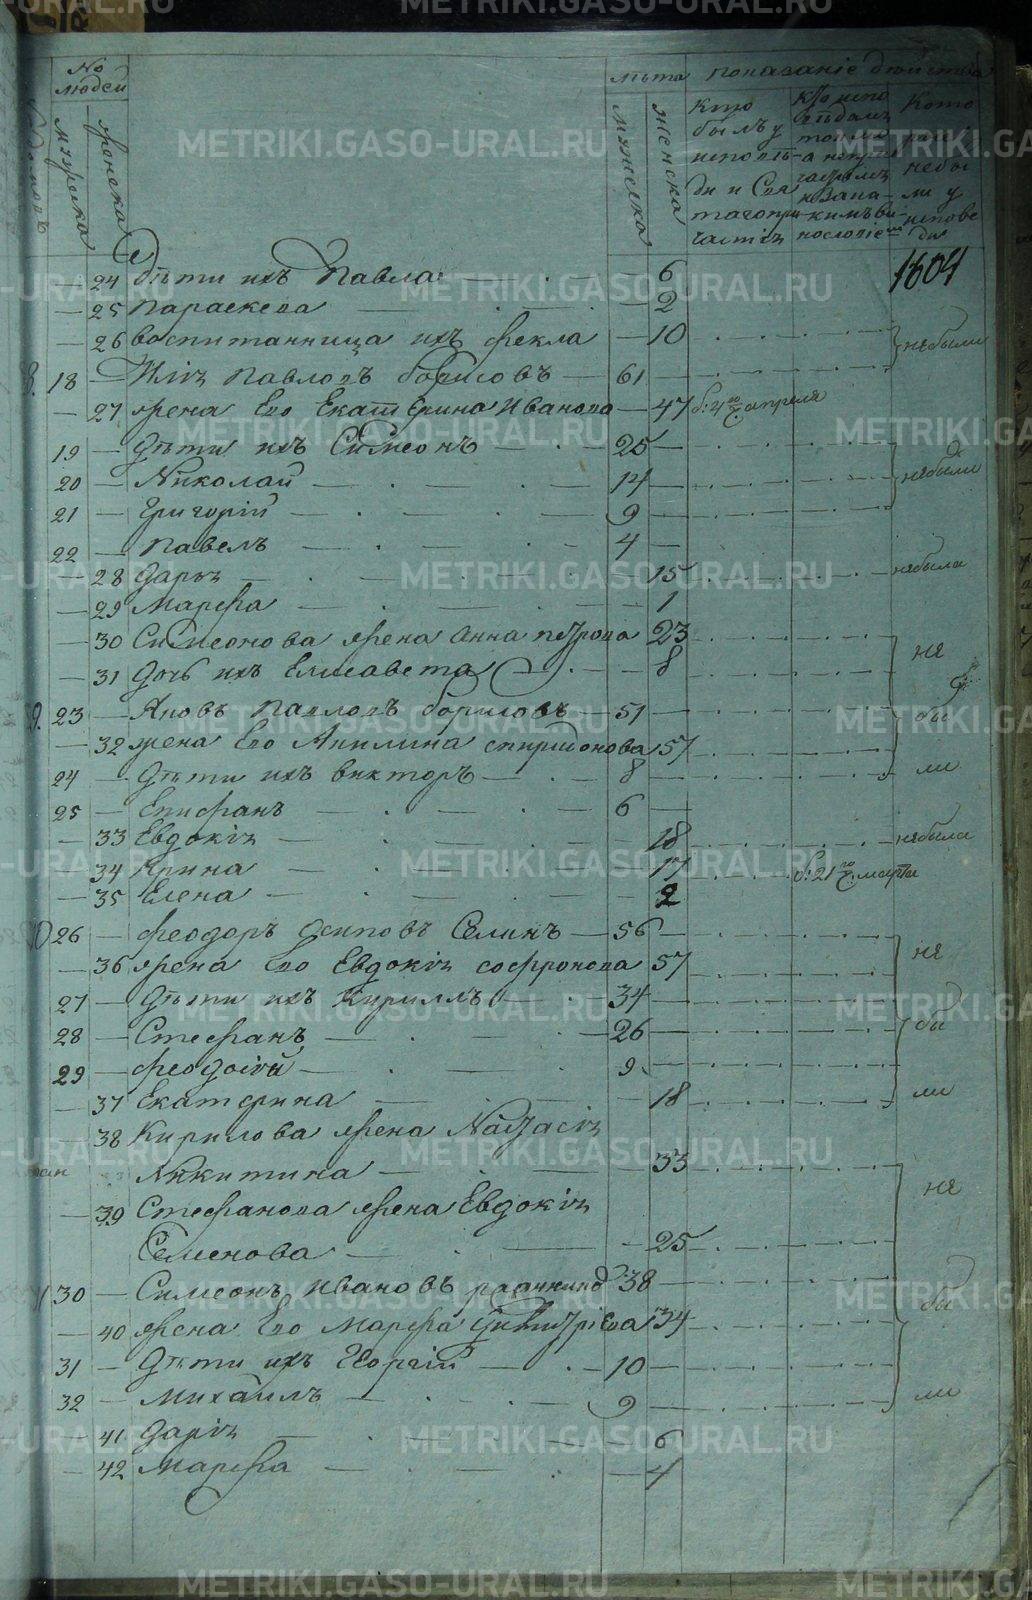 № людей
мужеска
женска
лѣта
мужеска
женска
показаніе дѣйства
кто былъ у исповѣди и Святаго причастія
кто исповѣдалися токмо а не причастился и за какимъ винословіемъ
Которые небыли у исповеди
1604
24 дѣти ихъ Павла 6
25 Параскева 2
26 воспитанница ихъ Фекла 10 небыли
18 Илія Павловъ борисовъ 61
27 жена Его Екатерина Иванова 47 б: 4го апреля
19 Дѣти ихъ Симеонъ 25
20 Николай 14 небыли
21 Григорій 9
22 Павелъ 4
28 Дарья 15 небыла
29 Марфа 1
30 Симеонова жена Анна петрова 23
31 Дочь ихъ Елисавета 8 не
9. 23 Яковъ Павловъ борисовъ 51 бы
32 жена Его Акилина спиридонова 57
24 Дѣти ихъ викторъ 8 ли
25 Епифанъ 6
33 Евдокія 18 небыла
34 Ирина 17 б: 21го марта
35 Елена 2
10 26 Феодоръ Осиповъ Селинъ 56 не
36 жена Его Евдокія софронова 57
27 Дѣти ихъ Кириллъ 34
28 Стефанъ 26 бы
29 Феодосій 9
37 Екатерина 18 ли
38 Кирилова жена Настасія
Никитина 33
39 Стефанова жена Евдокія не
Семенова 25
30 Симеонъ Ивановъ 38 бы
40 жена Его Марфа Димитріева 34
31 Дѣти ихъ Георгій 10
32 Михаилъ 9 ли
41 Дарія 6
42 Марфа 4